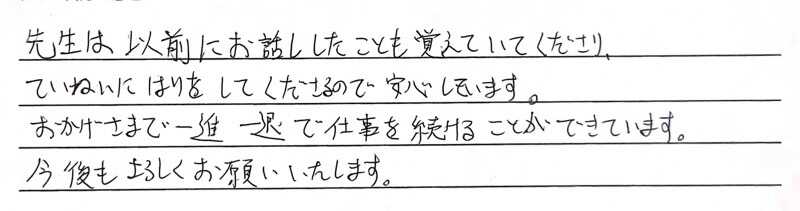 先生は以前にお話ししたことも覚えていてくださり、
ていねいにはりをしてくださるので安心しています。
おかげさまで一進一退で仕事を続けることができています。
今後もよろしくお願いいたします。